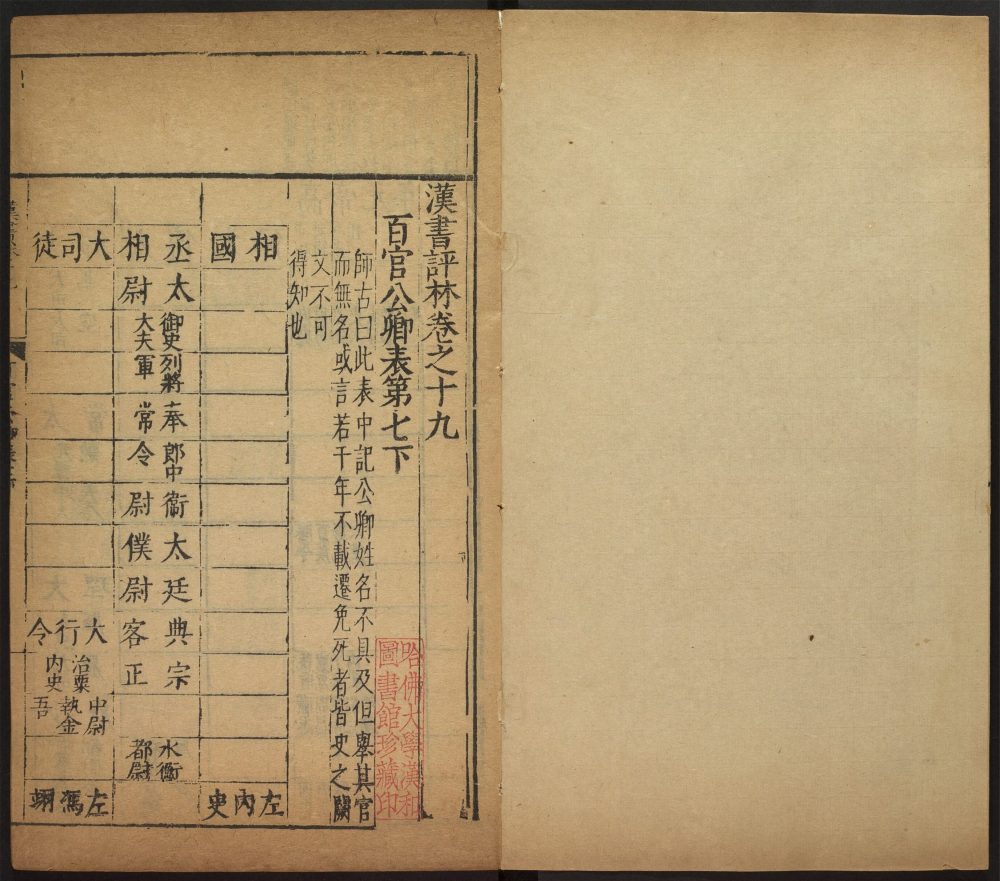 漢書評林卷之十九
百官公卿表第七下
師古曰此表中記公卿姓名不具及但舉其官
而無名或言若干年不載遷免死者皆史之闕
文不可
得知也
哈佛大學漢和
圖書館珍藏印
相國
左內史
丞相
太尉
御史大夫
列將軍
奉常
郎中令
衞尉
太僕
廷尉
典客
宗正
水衡都尉
大司徒
大行令
治粟內史
中尉執金吾
左馮翊